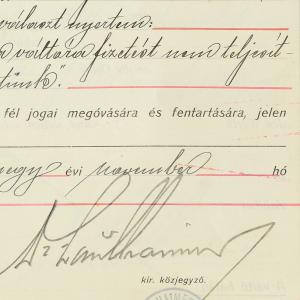 választ nyertem:
a váltóra fizetést nem teljesít-
tünk".
fél jogai megóvására és fentartására, jelen
négy évi november hó
Dr
kir. közjegyző.